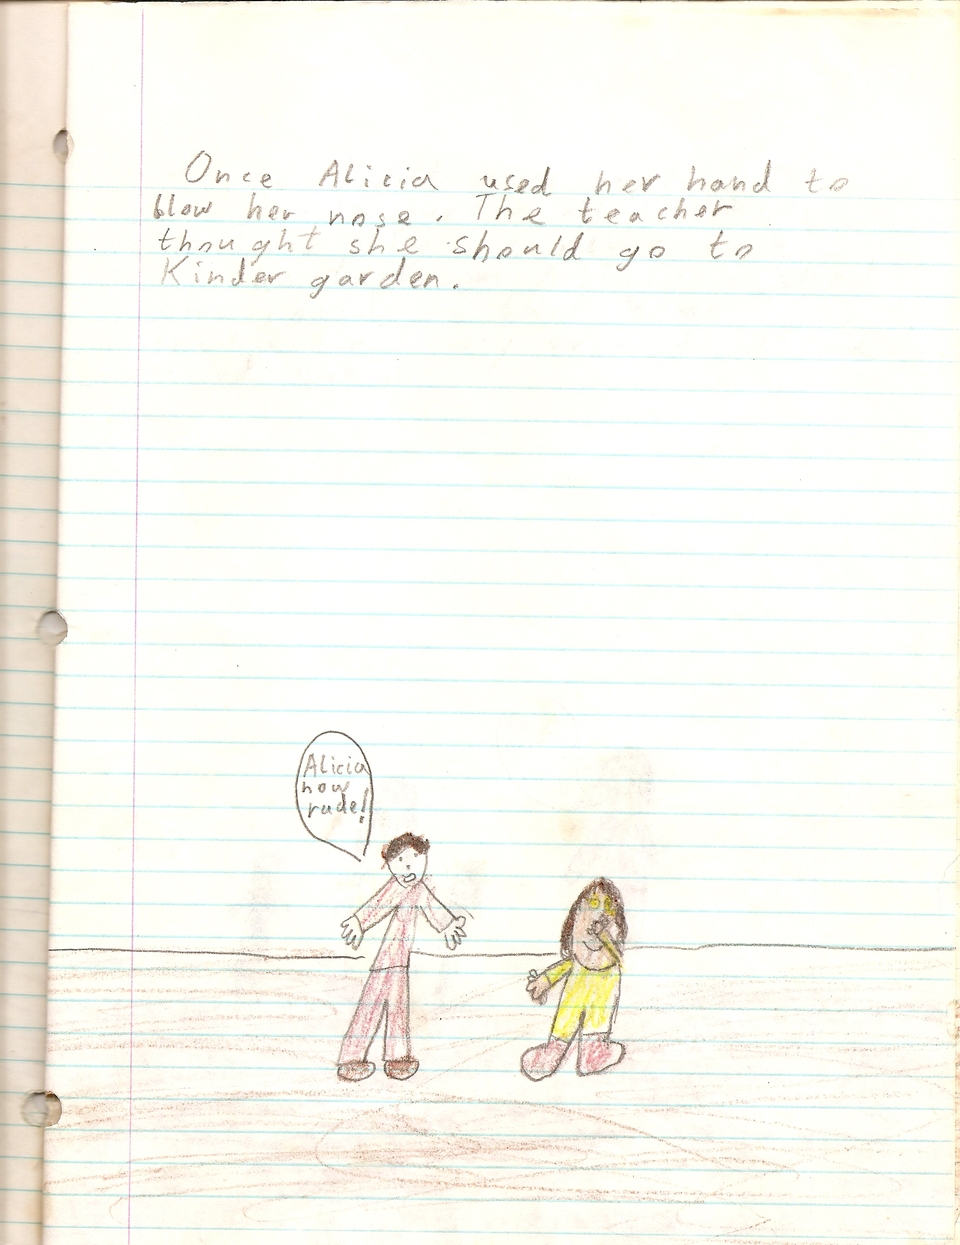 Once Alicia used her hand to
blow her nose. The teacher
thought she should go to
Kinder garden.
Alicia
how
rude!